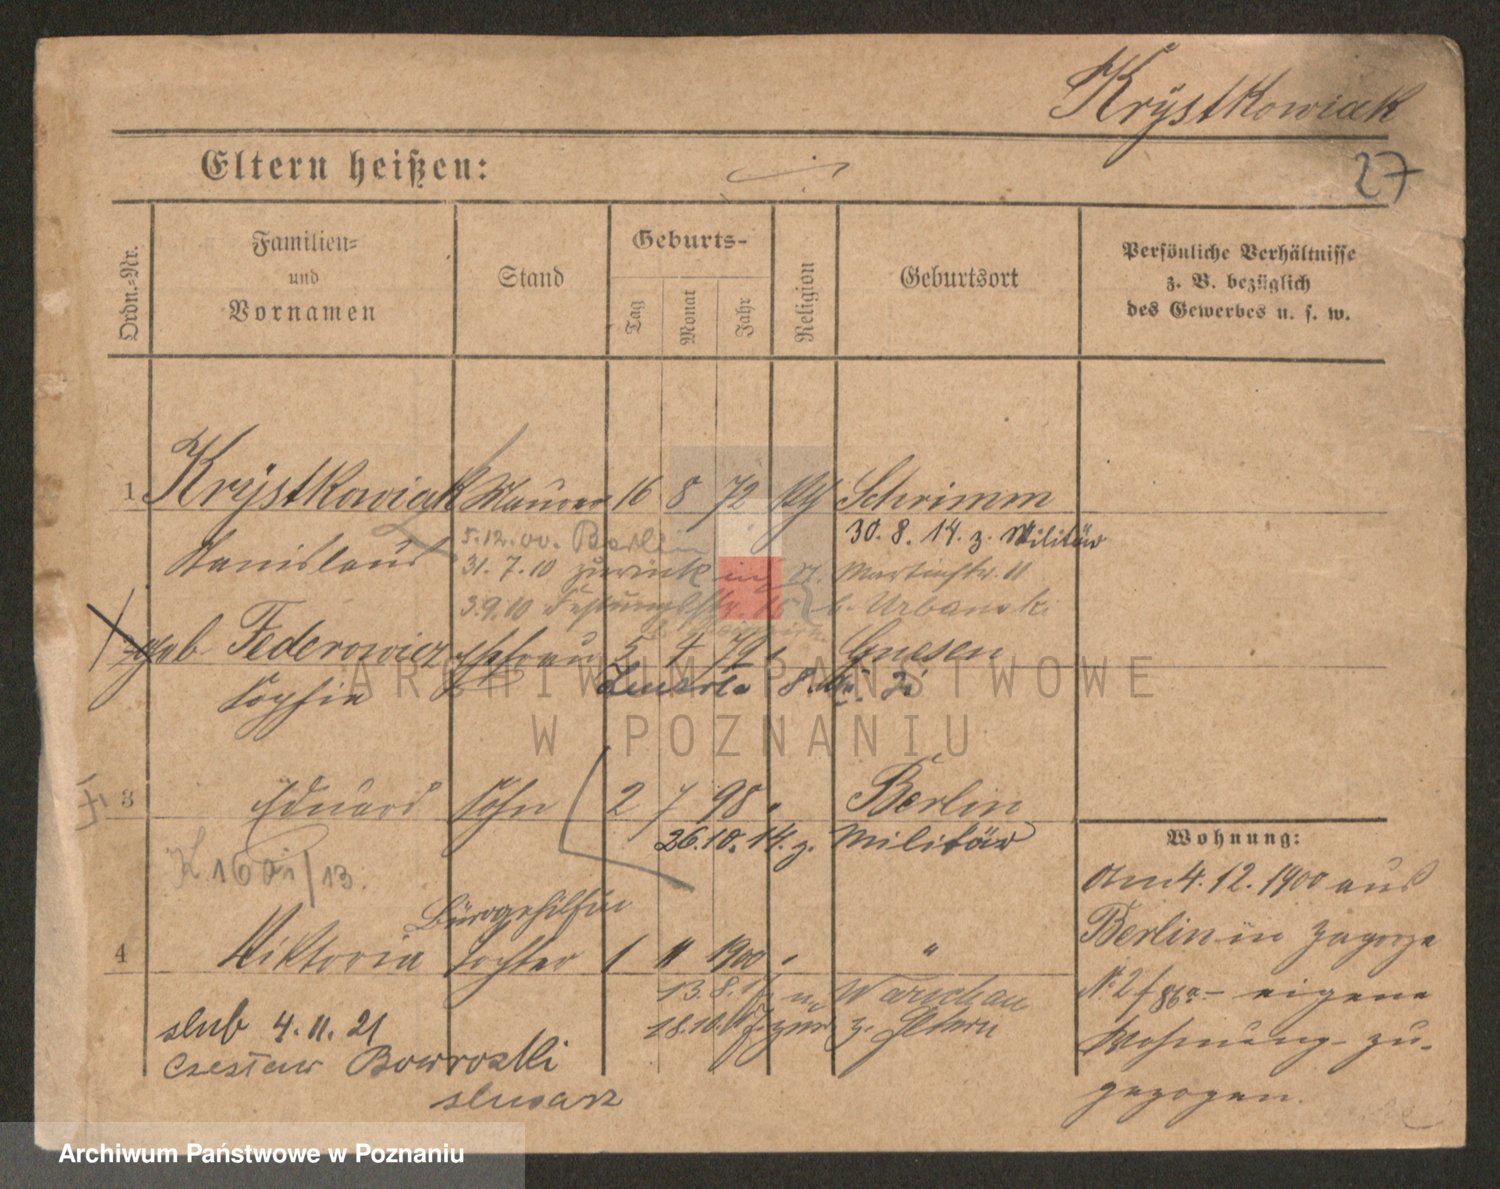 Krÿstkowiak
27
Eltern heißen:
Ordn.-Nr.
Familien- und Vornamen
Stand
Geburts-
Tag
Monat
Jahr
Religion
Geburtsort
Persönliche Verhältnisse z. B. bezüglich des Gewerbes u. s. w.
1 Krÿstkowiak Maurer 16 8 72 Schrimm
Stanislaus 5.12.00. Berlin 30. 8. 14. z. Militär
31. 7. 10 zurück in St. Martinstr. 11
3.9.10 Festungsstr. b. Urbanski
geb. Federowicz Ehefrau 5 4 79 " Gnesen
Sophia zmarła 8.
3 Eduard Sohn 2 7 98 " Berlin
26.10.14. z. Militär
K. 13.
Bürogehilfin
4 Viktoria Tochter 1 11 1900 " "
13.8. n. Warschau
18.10. zur. z. Eltern
slub 4. 11. 21
Czesław
slusarz
Wohnung:
Am 4. 12. 1900 aus
Berlin in Zagorze
No 2 eigene
Wohnung zu-
gezogen.
ARCHIWUM PAŃSTWOWE
W POZNANIU
Archiwum Państwowe w Poznaniu